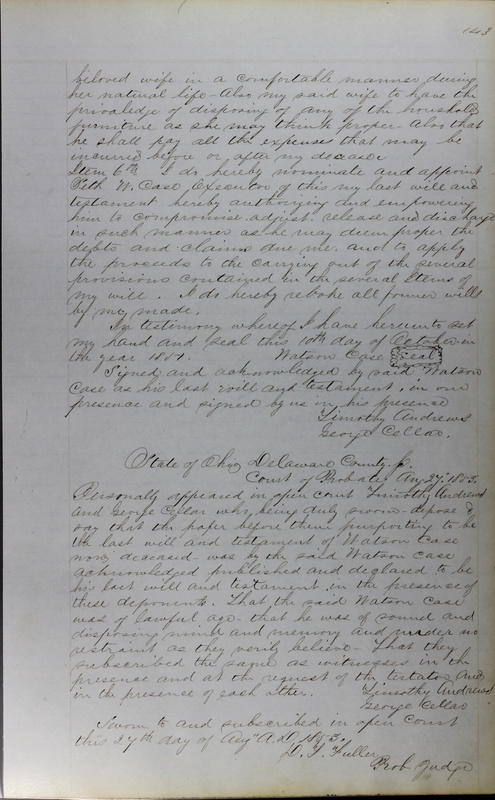 143
beloved wife in a comfortable manner during
her natural life - Also my said wife to have the
privaledge of disposing of any of the household
furniture as she may think proper - Also that
he shall pay all the expenses that may be
incurred before or after my decease
Item 6th I do hereby nominate and appoint
Seth W. Case Executor of this my last will and
testament hereby authorizing and empowering
him to compromise adjust release and discharge
in such manner as he may deem proper the
debts and claims due me and to apply
the proceeds to the carrying out of the several
provisions contained in the several Items of
my will. I do hereby reboke all former wills
by me made.
In testimony whereof I have hereunto set
my hand and seal this 10th day of October in
the year Watson Case Seal
Signed and acknowledged by said Watson
Case as his last will and testament, in our
presence and signed by us in his presence
Timothy Andrews
George Cellar.
State of Ohio Delaware County, ss.
Court of Probate Aug 27th 1853.
Personally appeared in open court Timothy Andrews
and George Cellar who being duly sworn depose &
say that the paper before them purporting to be
the last will and testament of Watson Case
now deceased was by the said Watson Case
acknowledged published and declared to be
his last will and testament in the presense of
these deponents. That the said Watson Case
was of lawful age - that he was of sound and
disposing mind and memory and under no
restraint as they verily believe - That they
subscribed the same as witnesses in the
presence and at the request of the testator and
in the presence of each other. Timothy Andrews
George Cellar
Sworn to and subscribed in open court
this 27th day of Aug A.D. 1853.
Fuller
Prob Judge